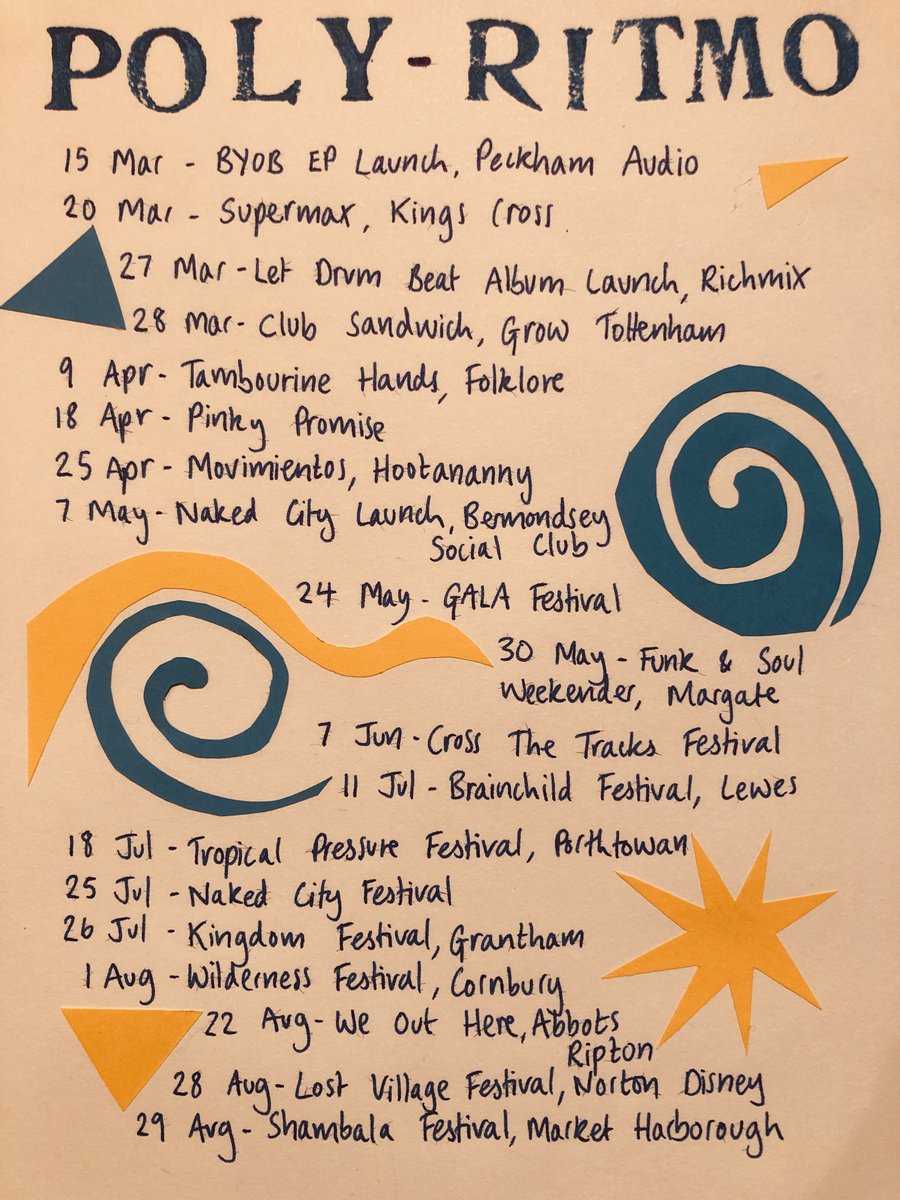 POLY-RITMO
15 Mar - BYOB EP Launch, Peckham Audio
20 Mar - Supermax, Kings Cross
27 Mar - Let Drum Beat Album Launch, Richmix
28 Mar - Club Sandwich, Grow Tottenham
9 Apr - Tambourine Hands, Folklore
18 Apr - Pinky Promise
25 Apr - Movimientos, Hootananny
7 May - Naked City Launch, Bermondsey
Social Club
24 May - GALA Festival
30 May - Funk & Soul
Weekender, Margate
7 Jun - Cross The Tracks Festival
11 Jul - Brainchild Festival, Lewes
18 Jul - Tropical Pressure Festival, Porthtowan
25 Jul - Naked City Festival
26 Jul - Kingdom Festival, Grantham
1 Aug - Wilderness Festival, Cornbury
22 Aug - We Out Here, Abbots
Ripton
28 Aug - Lost Village Festival, Norton Disney
29 Aug - Shambala Festival, Market Harborough